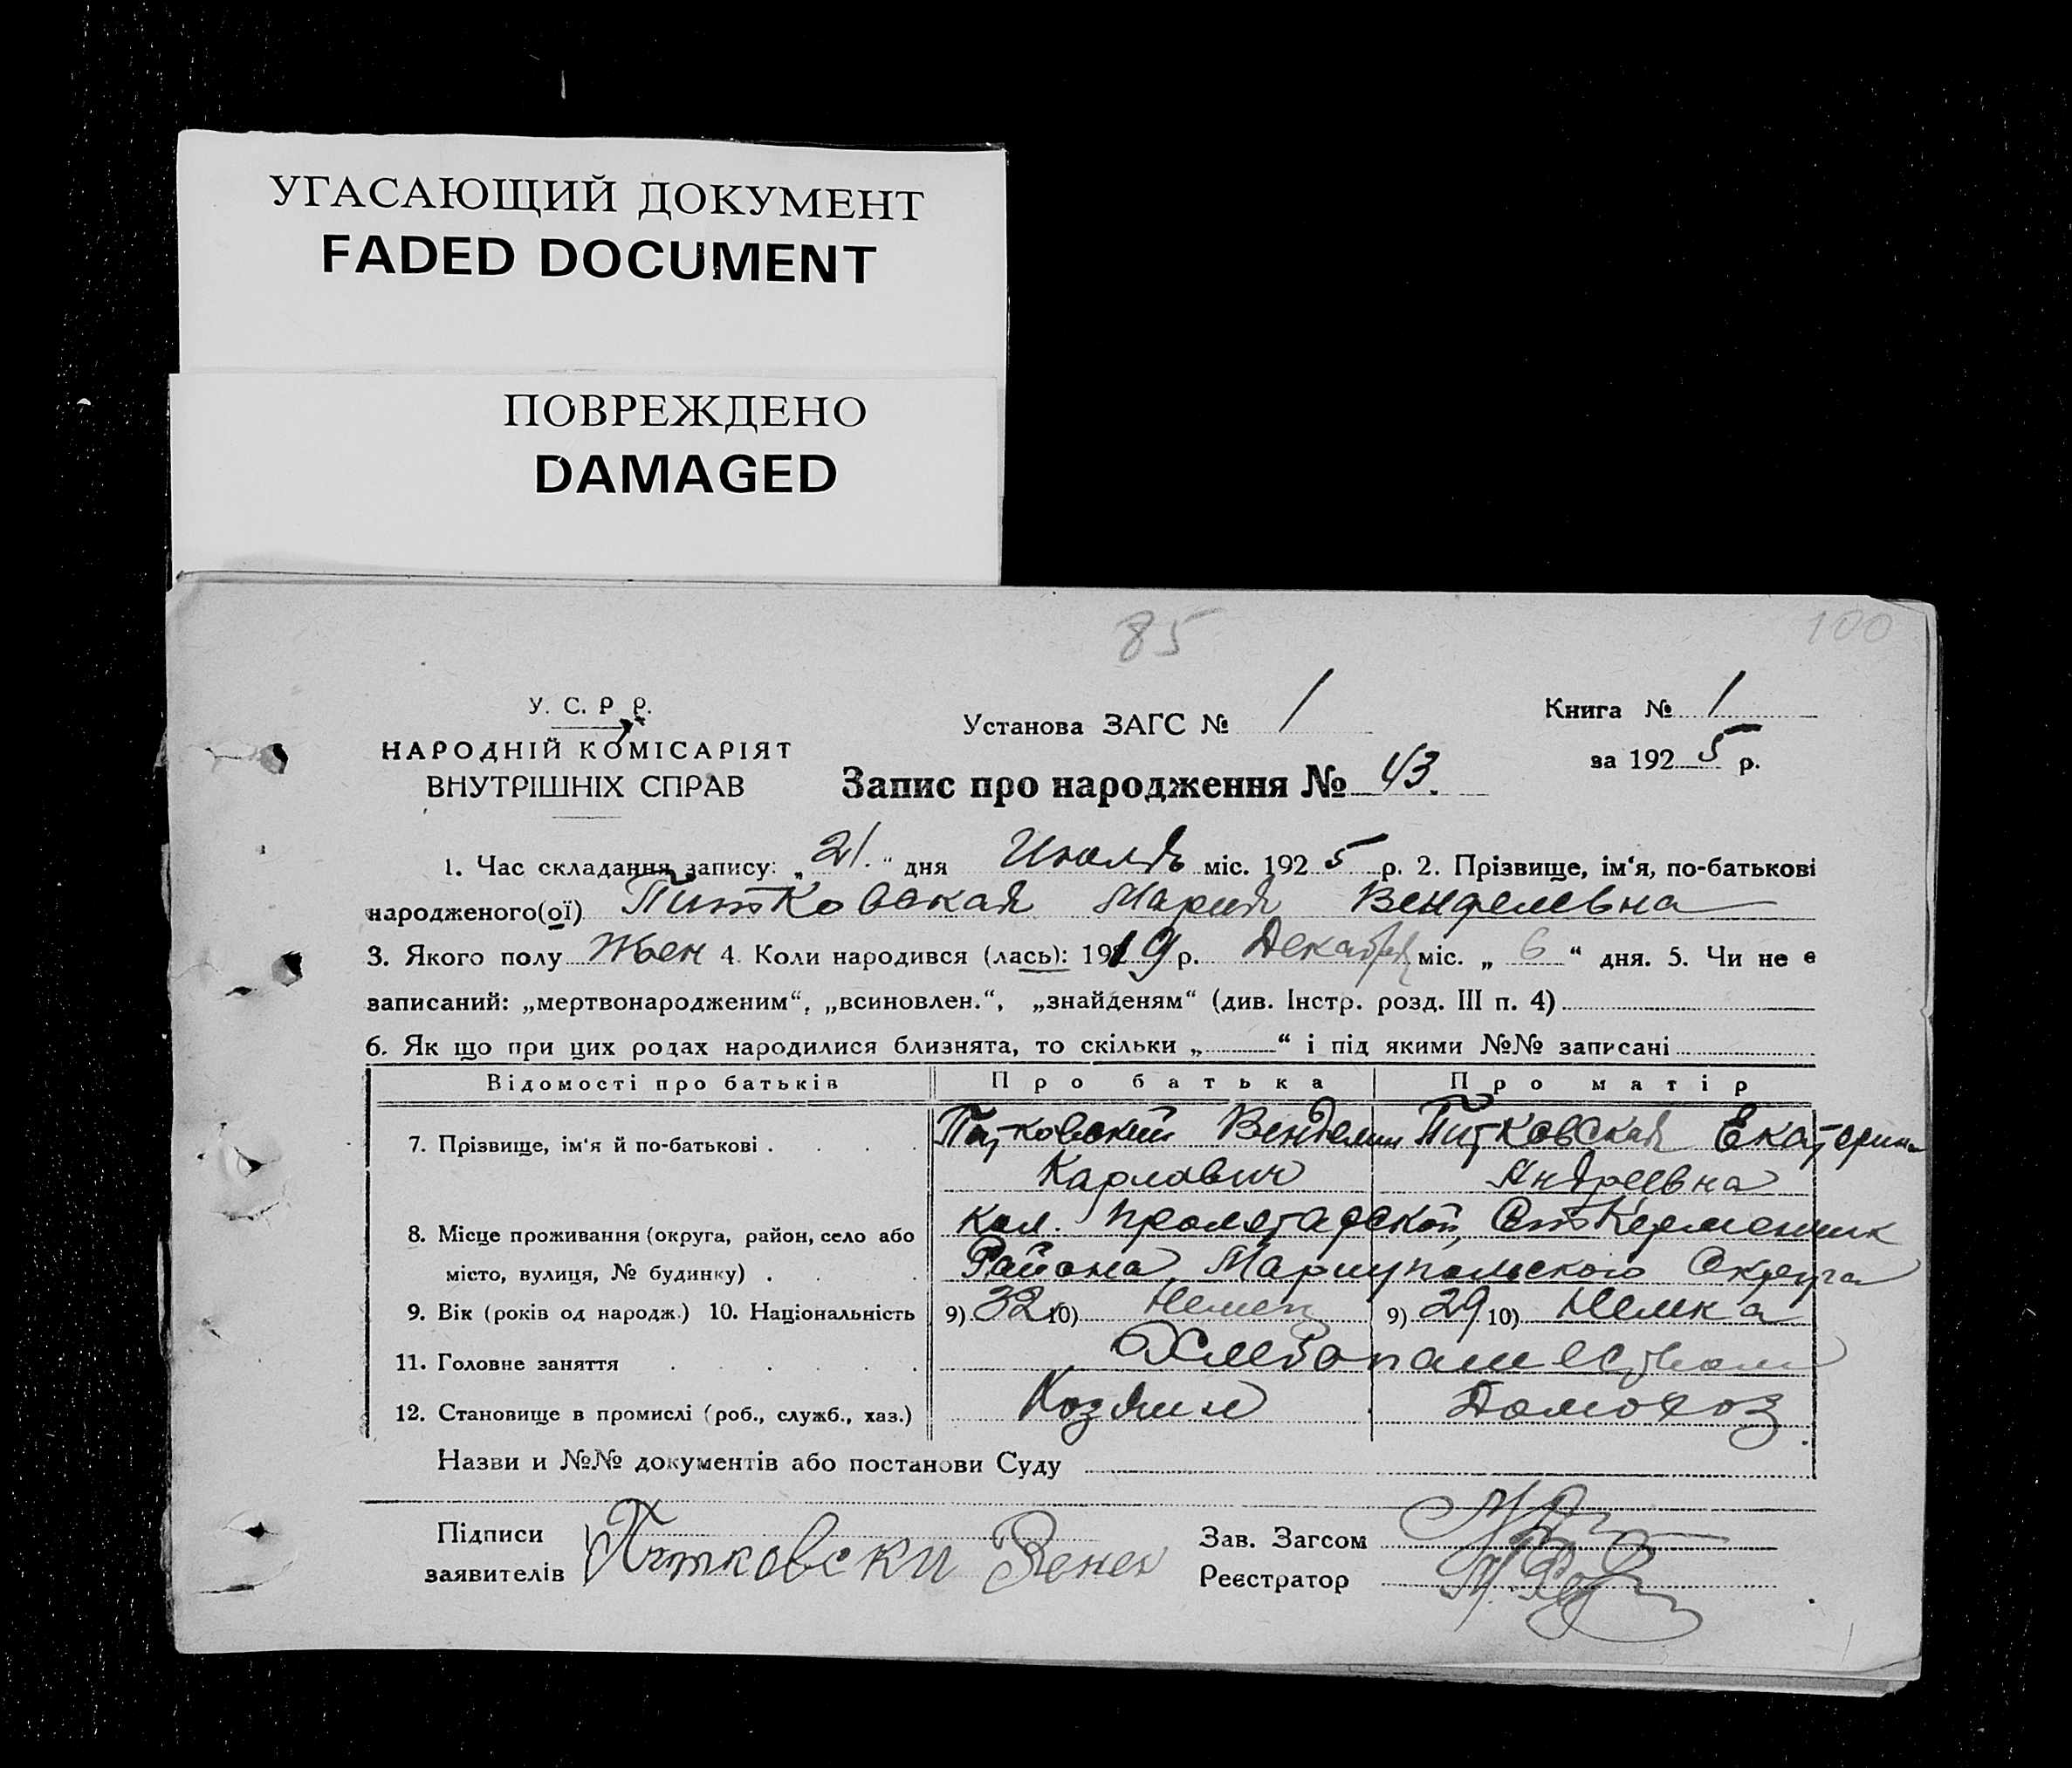 УГАСАЮЩИЙ ДОКУМЕНТ
FADED DOCUMENT
ПОВРЕЖДЕНО
DAMAGED
85
100
У. С. Р. Р.
НАРОДНІЙ КОМІСАРІЯТ
ВНУТРІШНІХ СПРАВ
Установа ЗАГС № 1
Книга № 1
за 1925 р.
Запис про народження № 43.
1. Час складання запису: „21.“ дня Июля міс. 1925 р. 2. Прізвище, ім‘я, по-батькові
народженого(ої) Питковская Мария Венделевна
3. Якого полу Жен 4. Коли народився (лась): 1919 р. Декабря міс. „ 6 “ дня. 5. Чи не є
записаний: „мертвонародженим“, „всиновлен.“, „знайденям“ (див. Інстр. розд. III п. 4)
6. Як що при цих родах народилися близнята, то скільки „ “ і під якими №№ записані
Відомості про батьків Про батька Про матір
7. Прізвище, ім‘я й по-батькові . . . . Питковский Венделин Питковская Екатерина
Карлович Андреевна
8. Місце проживання (округа, район, село або кол. Пролетарской, Ст Керменчик
місто, вулиця, № будинку) . . . Района, Мариупольского Округа
9. Вік (років од народж.) 10. Національність 9) 32 10) Немец 9) 29 10) Немка
11. Головне заняття . . . . . . Хлебопашеством
12. Становище в промислі (роб., служб., хаз.) Хозяин Домохоз
Назви и №№ документів або постанови Суду
Підписи
заявителів Питковски
Зав. Загсом
Реєстратор